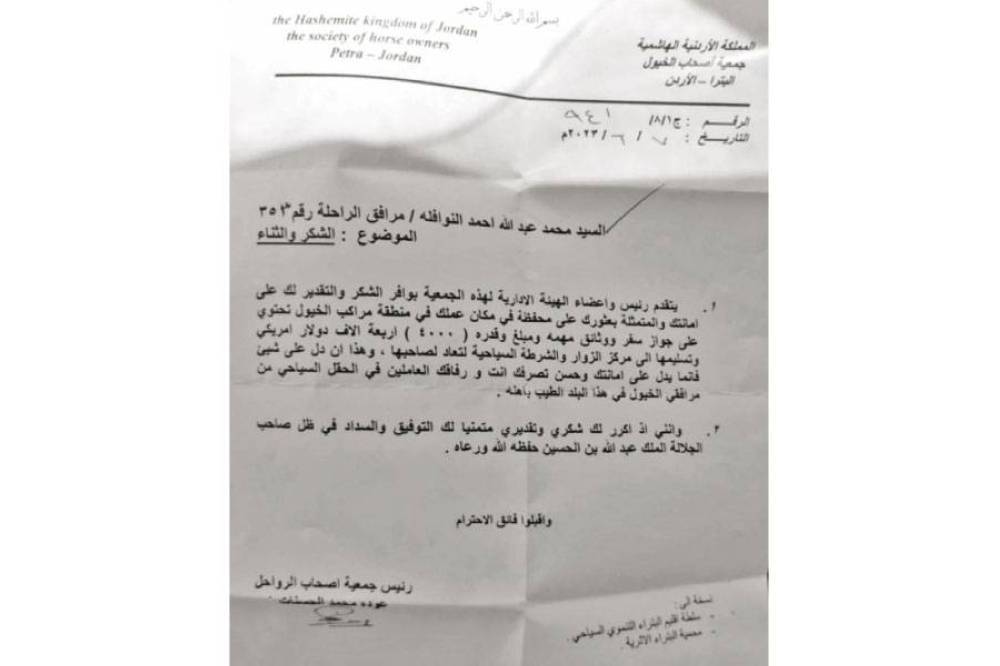 بسم الله الرحمن الرحيم
the Hashemite kingdom of Jordan
the society of horse owners
Petra – Jordan
المملكة الأردنية الهاشمية
جمعية أصحاب الخيول
البترا – الأردن
الرقم : ج/٨/١ ٩٤١
التاريخ : / ٦ / ٢٠٢٣م
السيد محمد عبد الله احمد النوافله / مرافق الراحلة رقم ٣٥١
الموضوع : الشكر والثناء
١. يتقدم رئيس واعضاء الهيئة الادارية لهذه الجمعية بوافر الشكر والتقدير لك على
امانتك والمتمثلة بعثورك على محفظة في مكان عملك في منطقة مراكب الخيول تحتوي
على جواز سفر ووثائق مهمه ومبلغ وقدره ( ٤٠٠٠ ) اربعة الاف دولار امريكي
وتسليمها الى مركز الزوار والشرطة السياحية لتعاد لصاحبها ، وهذا ان دل على شيئ
فانما يدل على امانتك وحسن تصرفك انت و رفاقك العاملين في الحقل السياحي من
مرافقي الخيول في هذا البلد الطيب بأهله .
٢. وانني اذ اكرر لك شكري وتقديري متمنيا لك التوفيق والسداد في ظل صاحب
الجلالة الملك عبد الله بن الحسين حفظه الله ورعاه .
واقبلوا فائق الاحترام
رئيس جمعية اصحاب الرواحل
عوده محمد الحسنات
نسخة الى :
- سلطة اقليم البتراء التنموي السياحي .
- محمية البتراء الاثرية .